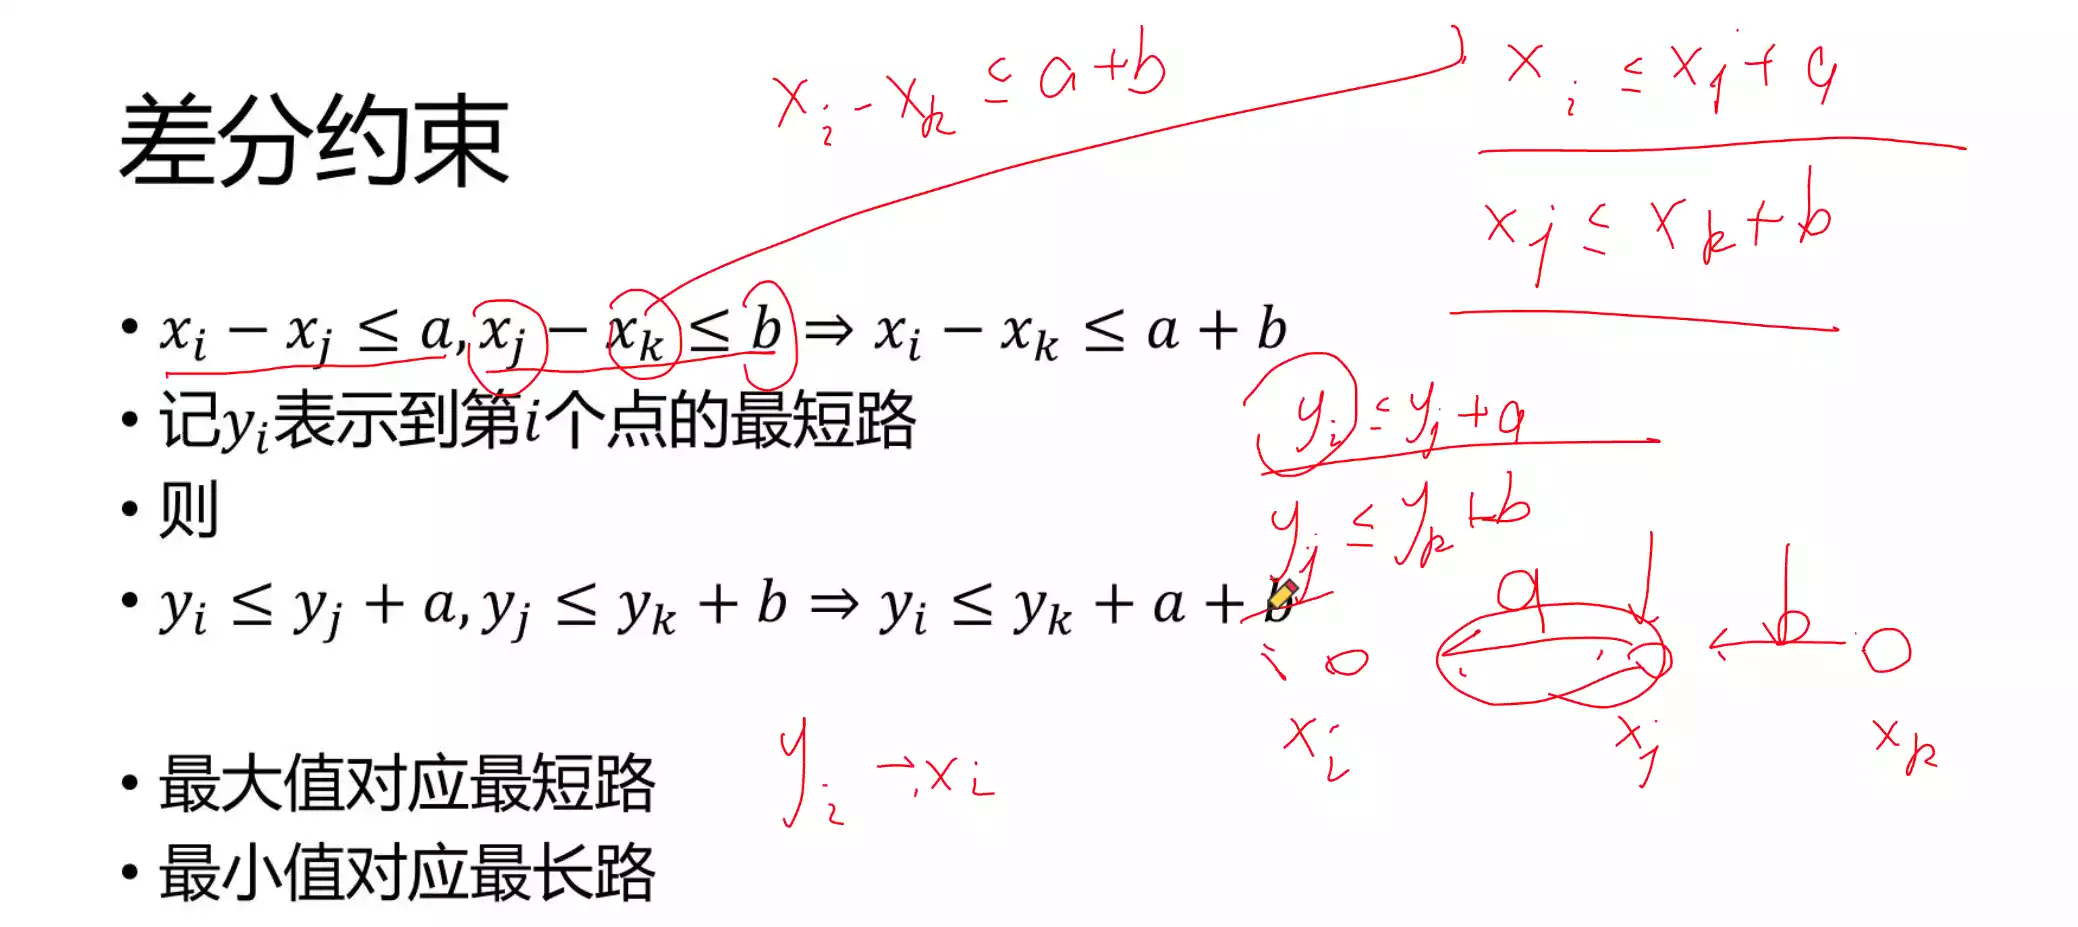 差分约束
x_i - x_k ≤ a+b
x_i ≤ x_j + a
x_j ≤ x_k + b
• x_i − x_j ≤ a, x_j − x_k ≤ b ⇒ x_i − x_k ≤ a + b
• 记y_i表示到第i个点的最短路
y_i ≤ y_j + a
• 则
y_j ≤ y_k + b
• y_i ≤ y_j + a, y_j ≤ y_k + b ⇒ y_i ≤ y_k + a + b
a b
i
x_i x_j x_k
• 最大值对应最短路
y_i → x_i
• 最小值对应最长路